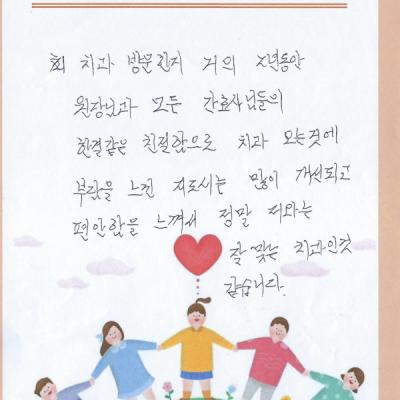 치과 방문한지 거의 2년동안
원장님과 모든 간호사님들의
한결같은 친절함으로 치과 오는것에
부담을 느낀 저로서는 많이 개선되고
편안함을 느껴서 정말 저와는
잘 맞는 치과인것
같습니다.